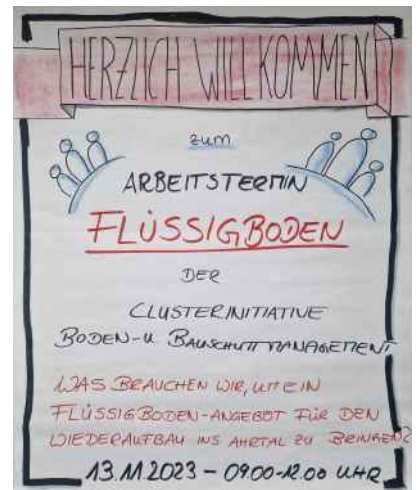 HERZLICH WILLKOMMEN
zum
ARBEITSTERMIN
FLÜSSIGBODEN
DER
CLUSTERINITIATIVE
BODEN-U. BAUSCHUTTMANAGEMENT
WAS BRAUCHEN WIR, UM EIN
FLÜSSIGBODEN-ANGEBOT FÜR DEN
WIEDERAUFBAU INS AHRTAL ZU BRINGEN?
13.11.2023 - 09.00-12.00 UHR